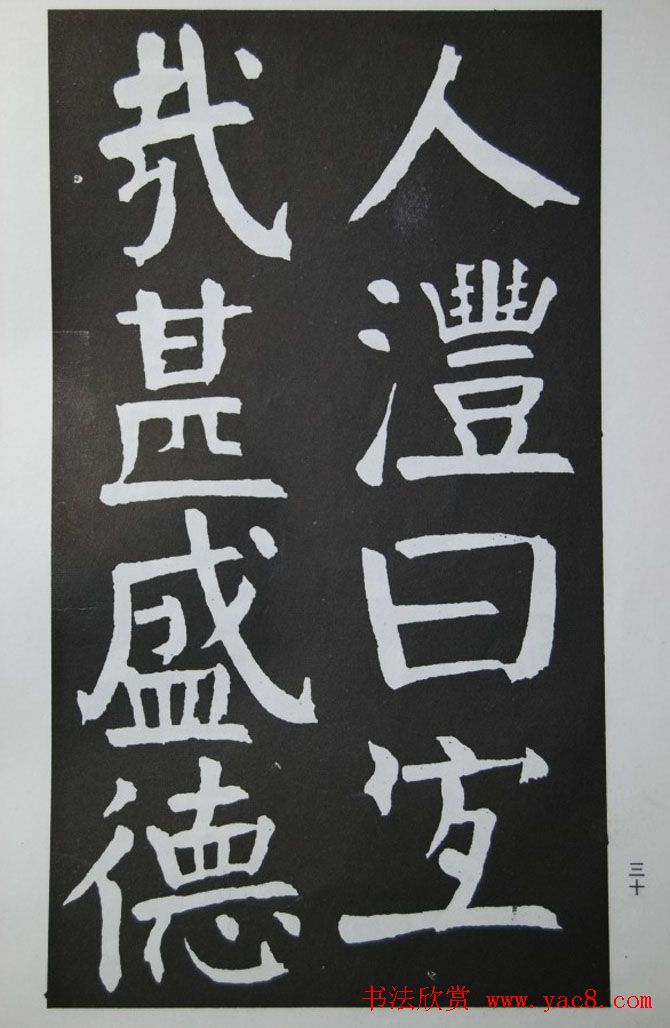 人灃曰宜
哉甚盛德
三十
书法欣赏 www.yac8.com